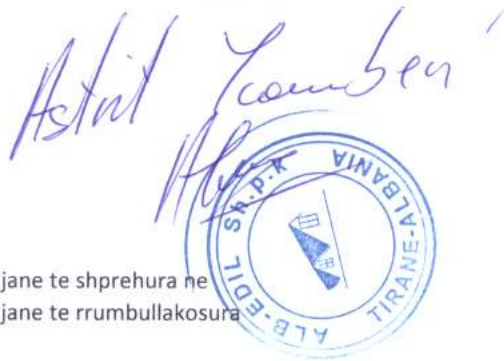 Astrit
ALB-EDIL Sh.p.K
ALBANIA
TIRANE-ALBANIA
jane te shprehura ne
jane te rrumbullakosura